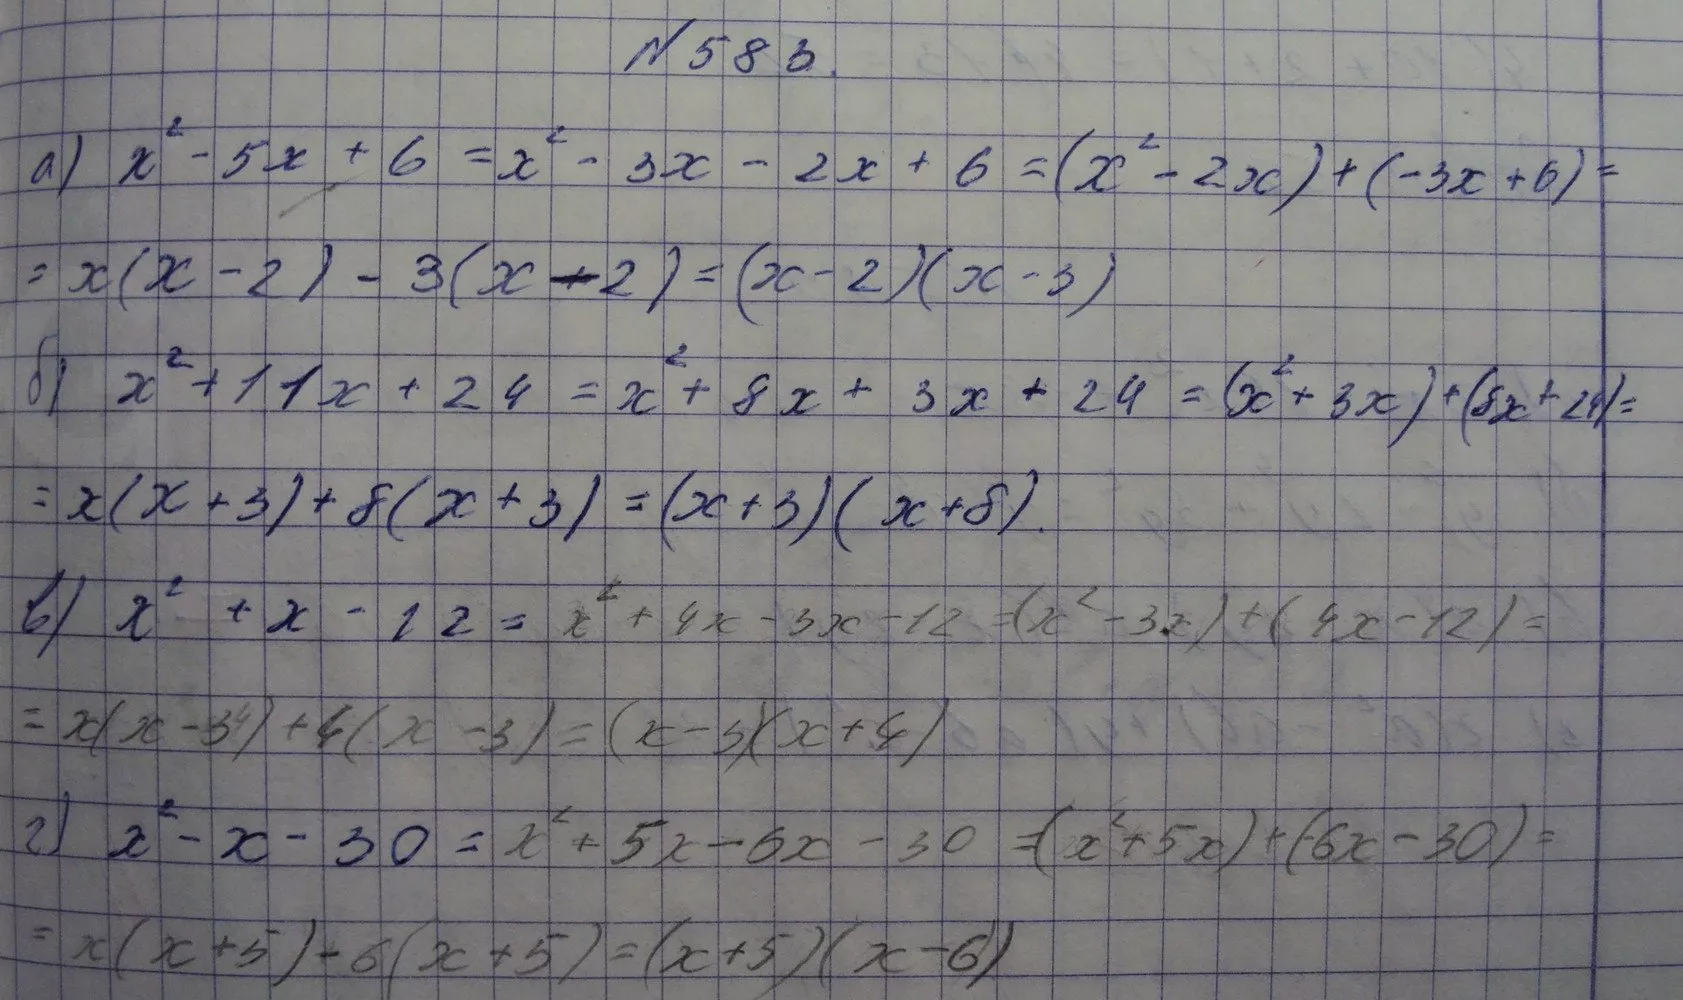 №583.
а) x² - 5x + 6 = x² - 3x - 2x + 6 = (x² - 2x) + (-3x + 6) =
= x(x - 2) - 3(x - 2) = (x - 2)(x - 3)
б) x² + 11x + 24 = x² + 8x + 3x + 24 = (x² + 3x) + (8x + 24) =
= x(x + 3) + 8(x + 3) = (x + 3)(x + 8).
в) x² + x - 12 = x² + 4x - 3x - 12 = (x² - 3x) + (4x - 12) =
= x(x - 3) + 4(x - 3) = (x - 3)(x + 4)
г) x² - x - 30 = x² + 5x - 6x - 30 = (x² + 5x) + (-6x - 30) =
= x(x + 5) - 6(x + 5) = (x + 5)(x - 6)